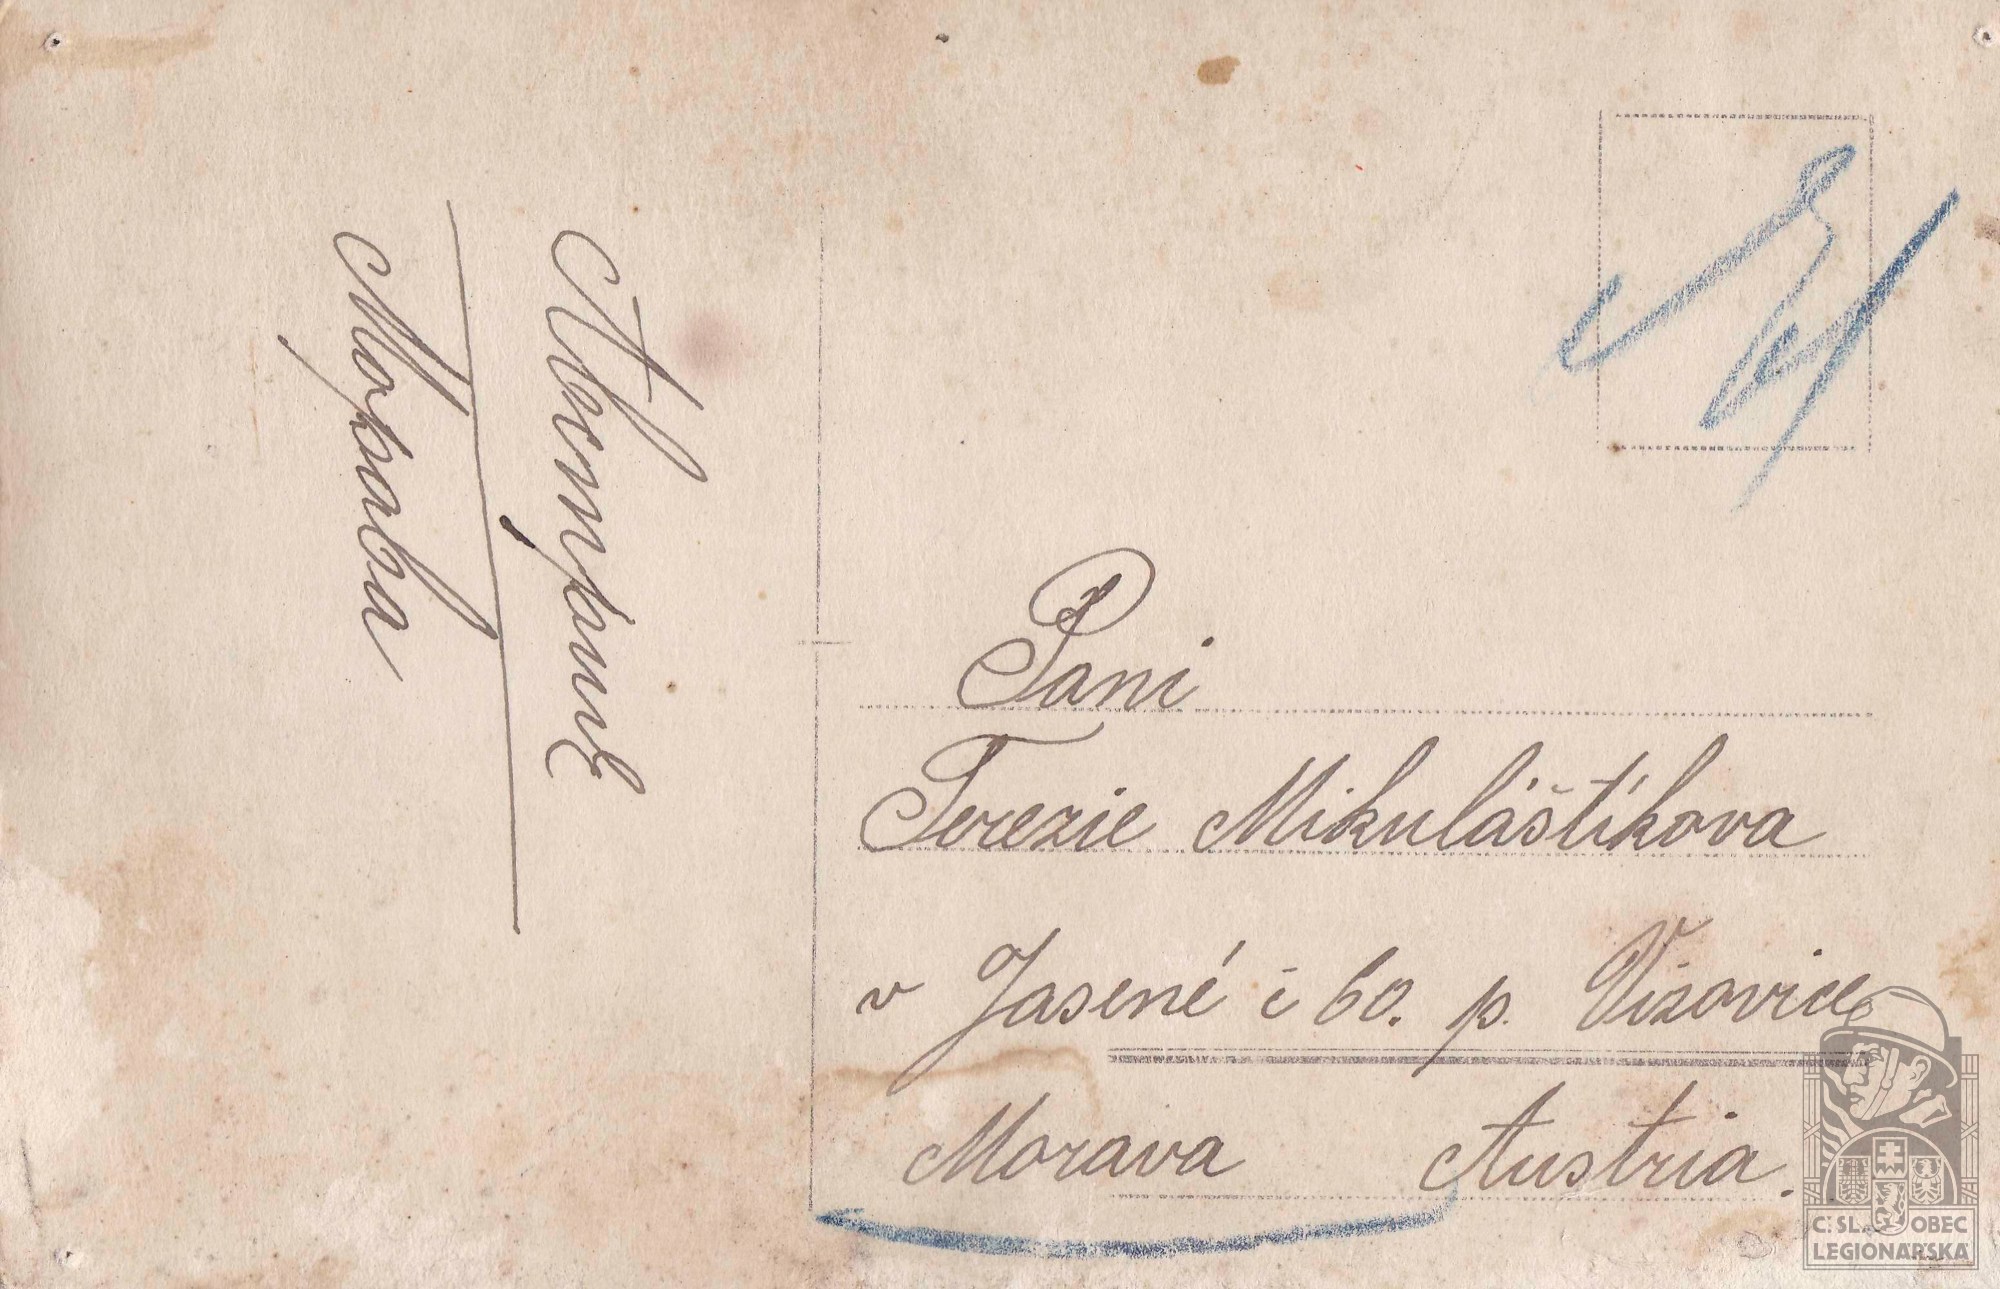 Австрія
Морава
Pani
Terezie Mikuláštíkova
v Jasené č 60. p. Vizovice
Morava Austria.
ČSL. OBEC
LEGIONÁŘSKÁ